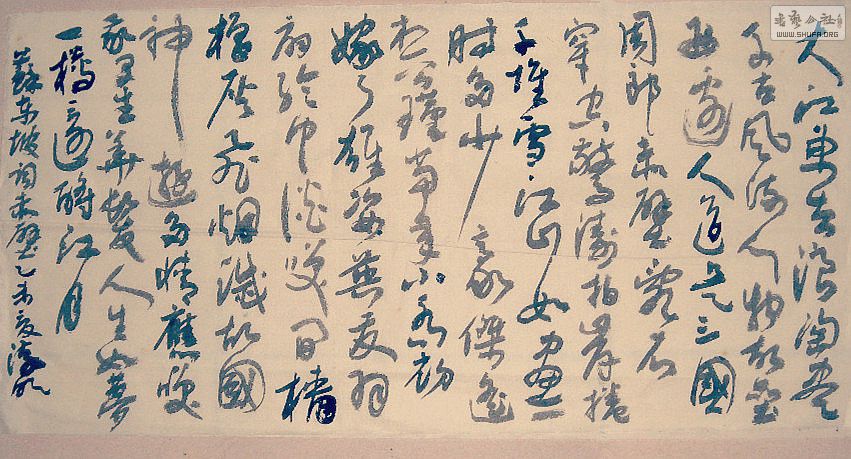 書藝公社
WWW.SHUFA.ORG
大江東去浪淘尽
千古風流人物故壘
西邊人道是三國
周郎赤壁亂石
穿空驚濤拍岸捲
千堆雪江山如畫一
時多少豪傑遙
想公瑾當年小喬初
嫁了雄姿英发羽
扇綸巾談笑間檣
櫓灰飛烟滅故國
神遊多情應笑
我早生華髮人生如夢
一樽還酹江月
蘇東坡詞赤壁乙未夏